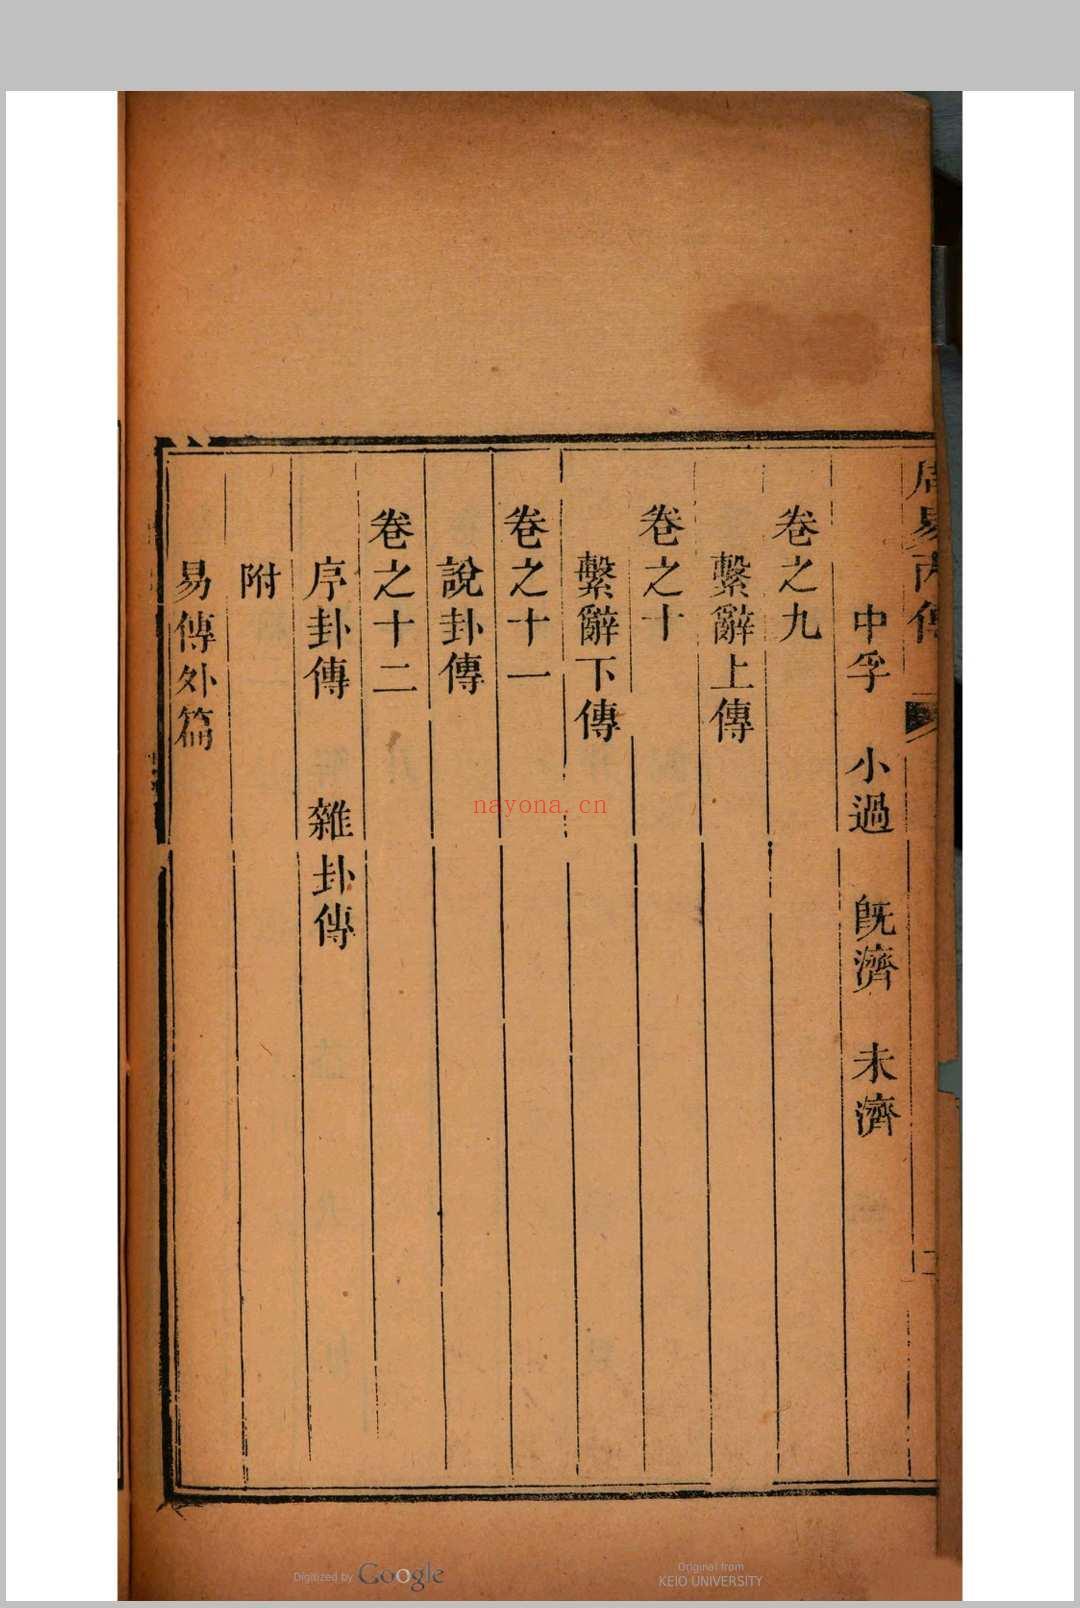 中孚　小過　旣濟　未濟
卷之九
繫辭上傳
卷之十
繫辭下傳
卷之十一
說卦傳
卷之十二
序卦傳　雜卦傳
附
易傳外篇
nayona.cn
Digitized by Google
Original from
KEIO UNIVERSITY